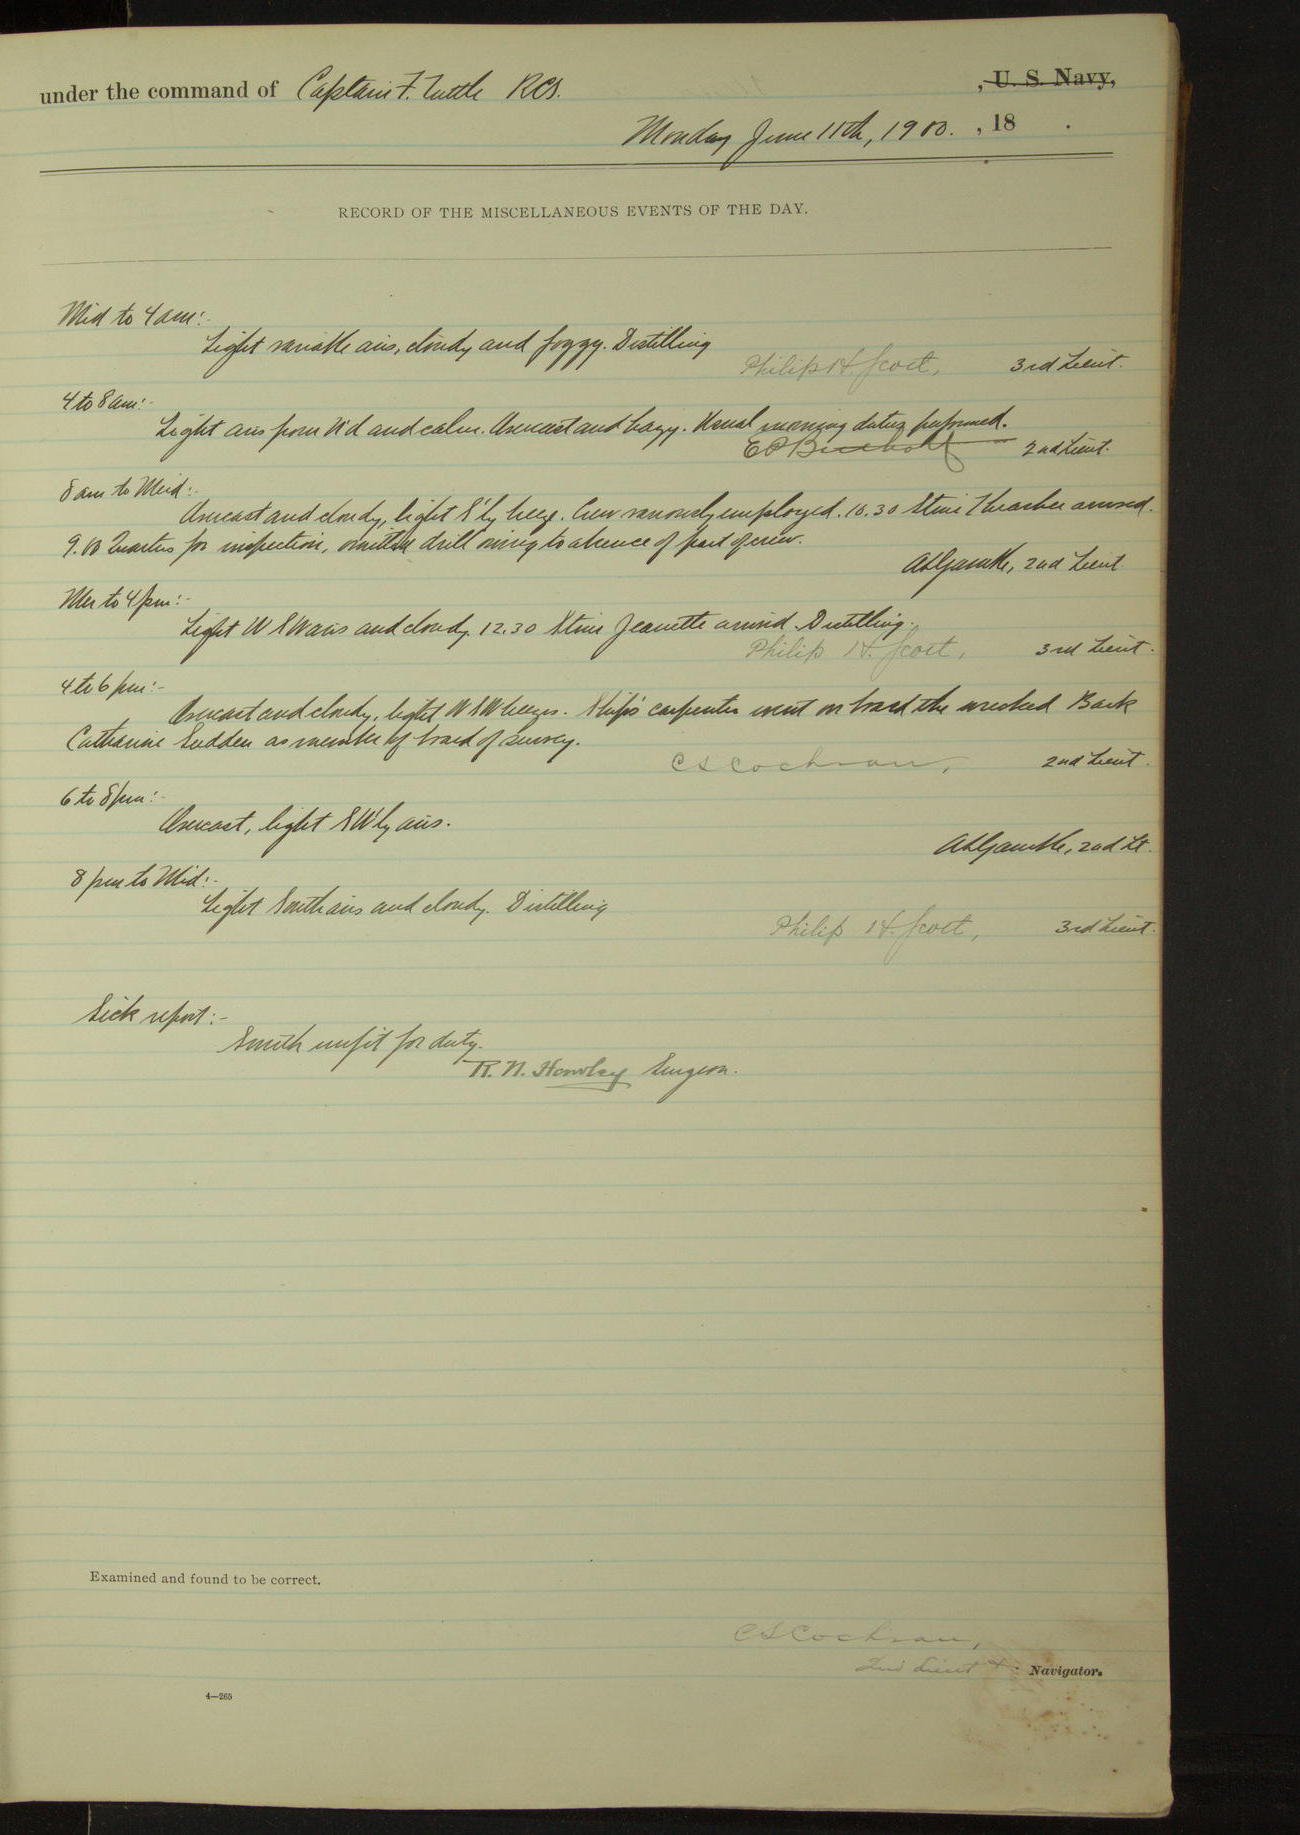 under the command of Captain F. Tuttle RCS. , U. S. Navy,
Monday June 11th, 1900. , 18 .
RECORD OF THE MISCELLANEOUS EVENTS OF THE DAY.
Mid to 4 am:-
Light variable airs, cloudy and foggy. Distilling
Philip H Scott, 3rd Lieut.
4 to 8 am:-
Light airs from N'd and calm. Overcast and hazy. Usual morning duties performed.
E P Bertholf 2nd Lieut.
8 am to Meid:-
Overcast and cloudy, light S'ly breeze. Crew variously employed. 10.30 Stmr Thrasher arrived.
9.00 Quarters for inspection, omitted drill owing to absence of part of crew.
A L Gamble, 2nd Lieut
Mer to 4 pm:-
Light W S W airs and cloudy. 12.30 Stmr Jeanette arrived. Distilling.
Philip H. Scott, 3rd Lieut.
4 to 6 pm:-
Overcast and cloudy, light W S W breezes. Ship's carpenter went on board the wrecked Bark
Catharine Sudden as member of board of survey.
C S Cochran, 2nd Lieut.
6 to 8 pm:-
Overcast, light SW'ly airs.
A L Gamble, 2nd Lt.
8 pm to Mid:-
Light South airs and cloudy. Distilling
Philip H. Scott, 3rd Lieut.
Sick report:-
Smith unfit for duty.
R. N. Hawley Surgeon.
Examined and found to be correct.
C S Cochran,
2nd Lieut & Navigator.
4—265